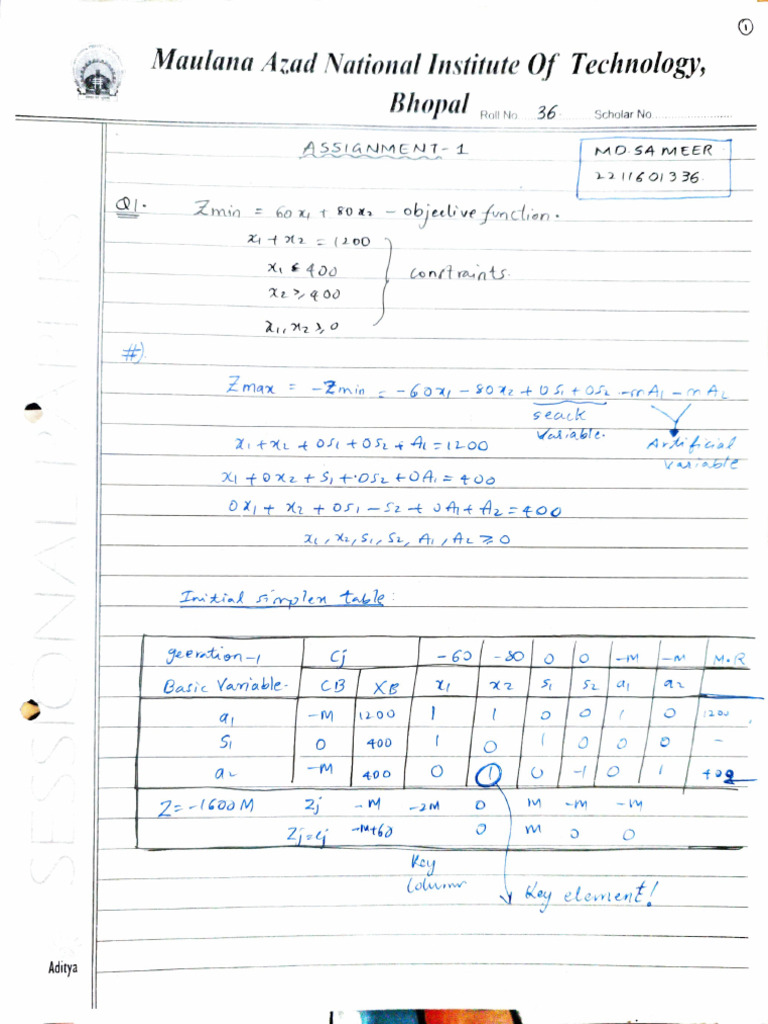 ①
Maulana Azad National Institute Of Technology,
Bhopal
Roll No. 36. Scholar No.
ASSIGNMENT-1
MD.SAMEER
2211601336.
Q1. Zmin = 60x1 + 80x2 - objective function.
x1 + x2 = 1200
x1 ≤ 400
x2 ≥ 400
x1, x2 ≥ 0
constraints.
#)
Zmax = -Zmin = -60x1 - 80x2 + 0S1 + 0S2 - mA1 - mA2
seack
variable.
Artificial
variable
x1 + x2 + 0S1 + 0S2 + A1 = 1200
x1 + 0x2 + S1 + 0S2 + 0A1 = 400
0x1 + x2 + 0S1 - S2 + 0A1 + A2 = 400
x1, x2, S1, S2, A1, A2 ≥ 0
Initial simplex table:
geeration-1 Cj -60 -80 0 0 -M -M M.R
Basic Variable. CB XB x1 x2 S1 S2 a1 a2
a1 -M 1200 1 1 0 0 1 0 1200
S1 0 400 1 0 1 0 0 0 -
a2 -M 400 0 1 0 -1 0 1 400
Z = -1600M Zj -M -2M 0 M -M -M
Zj=Cj -M+60 0 M 0 0
Key
Column
Key element!
SESSIONAL PAPERS
Aditya